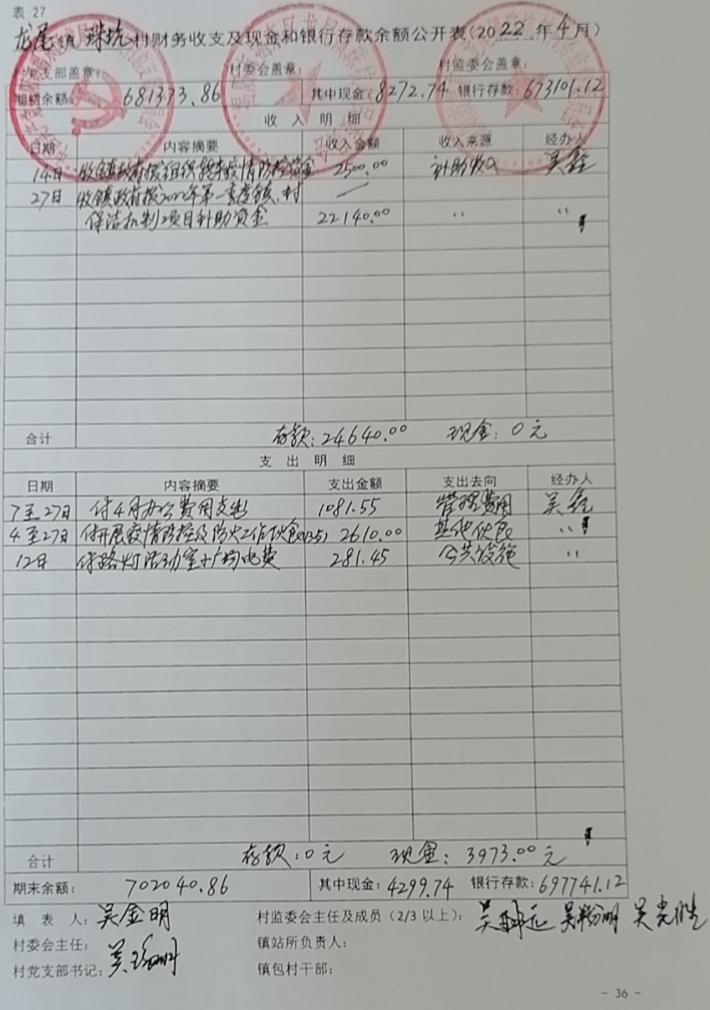 表 27
龙尾镇 珠坑村财务收支及现金和银行存款余额公开表(2022年4月)
村党支部盖章: 村委会盖章: 村监委会盖章:
期初余额: 681373.86 其中现金:8272.74 银行存款:673101.12
收入明细
日期 内容摘要 收入金额 收入来源 经办人
14日 收镇政府拨组织 疫情防控资金 2500.00 补助收入 吴
27日 收镇政府拨2022年第一季度镇、村
保洁机制项目补助资金 22140.00 〃 〃
合计 存款:24640.00 现金:0元
支出明细
日期 内容摘要 支出金额 支出去向 经办人
7至27日 付4月办公费用支出 1081.55 管理费用 吴
4至27日 付开展疫情防控及防火工作伙食 2610.00 其他伙食 〃
12日 付路灯活动室广场电费 281.45 公共设施 〃
合计 存款:0元 现金:3973.00元
期末余额: 702040.86 其中现金:4299.74 银行存款:697741.12
填表人:吴金明 村监委会主任及成员(2/3以上): 吴 吴 吴光胜
村委会主任: 镇站所负责人:
村党支部书记:吴 镇包村干部:
- 36 -